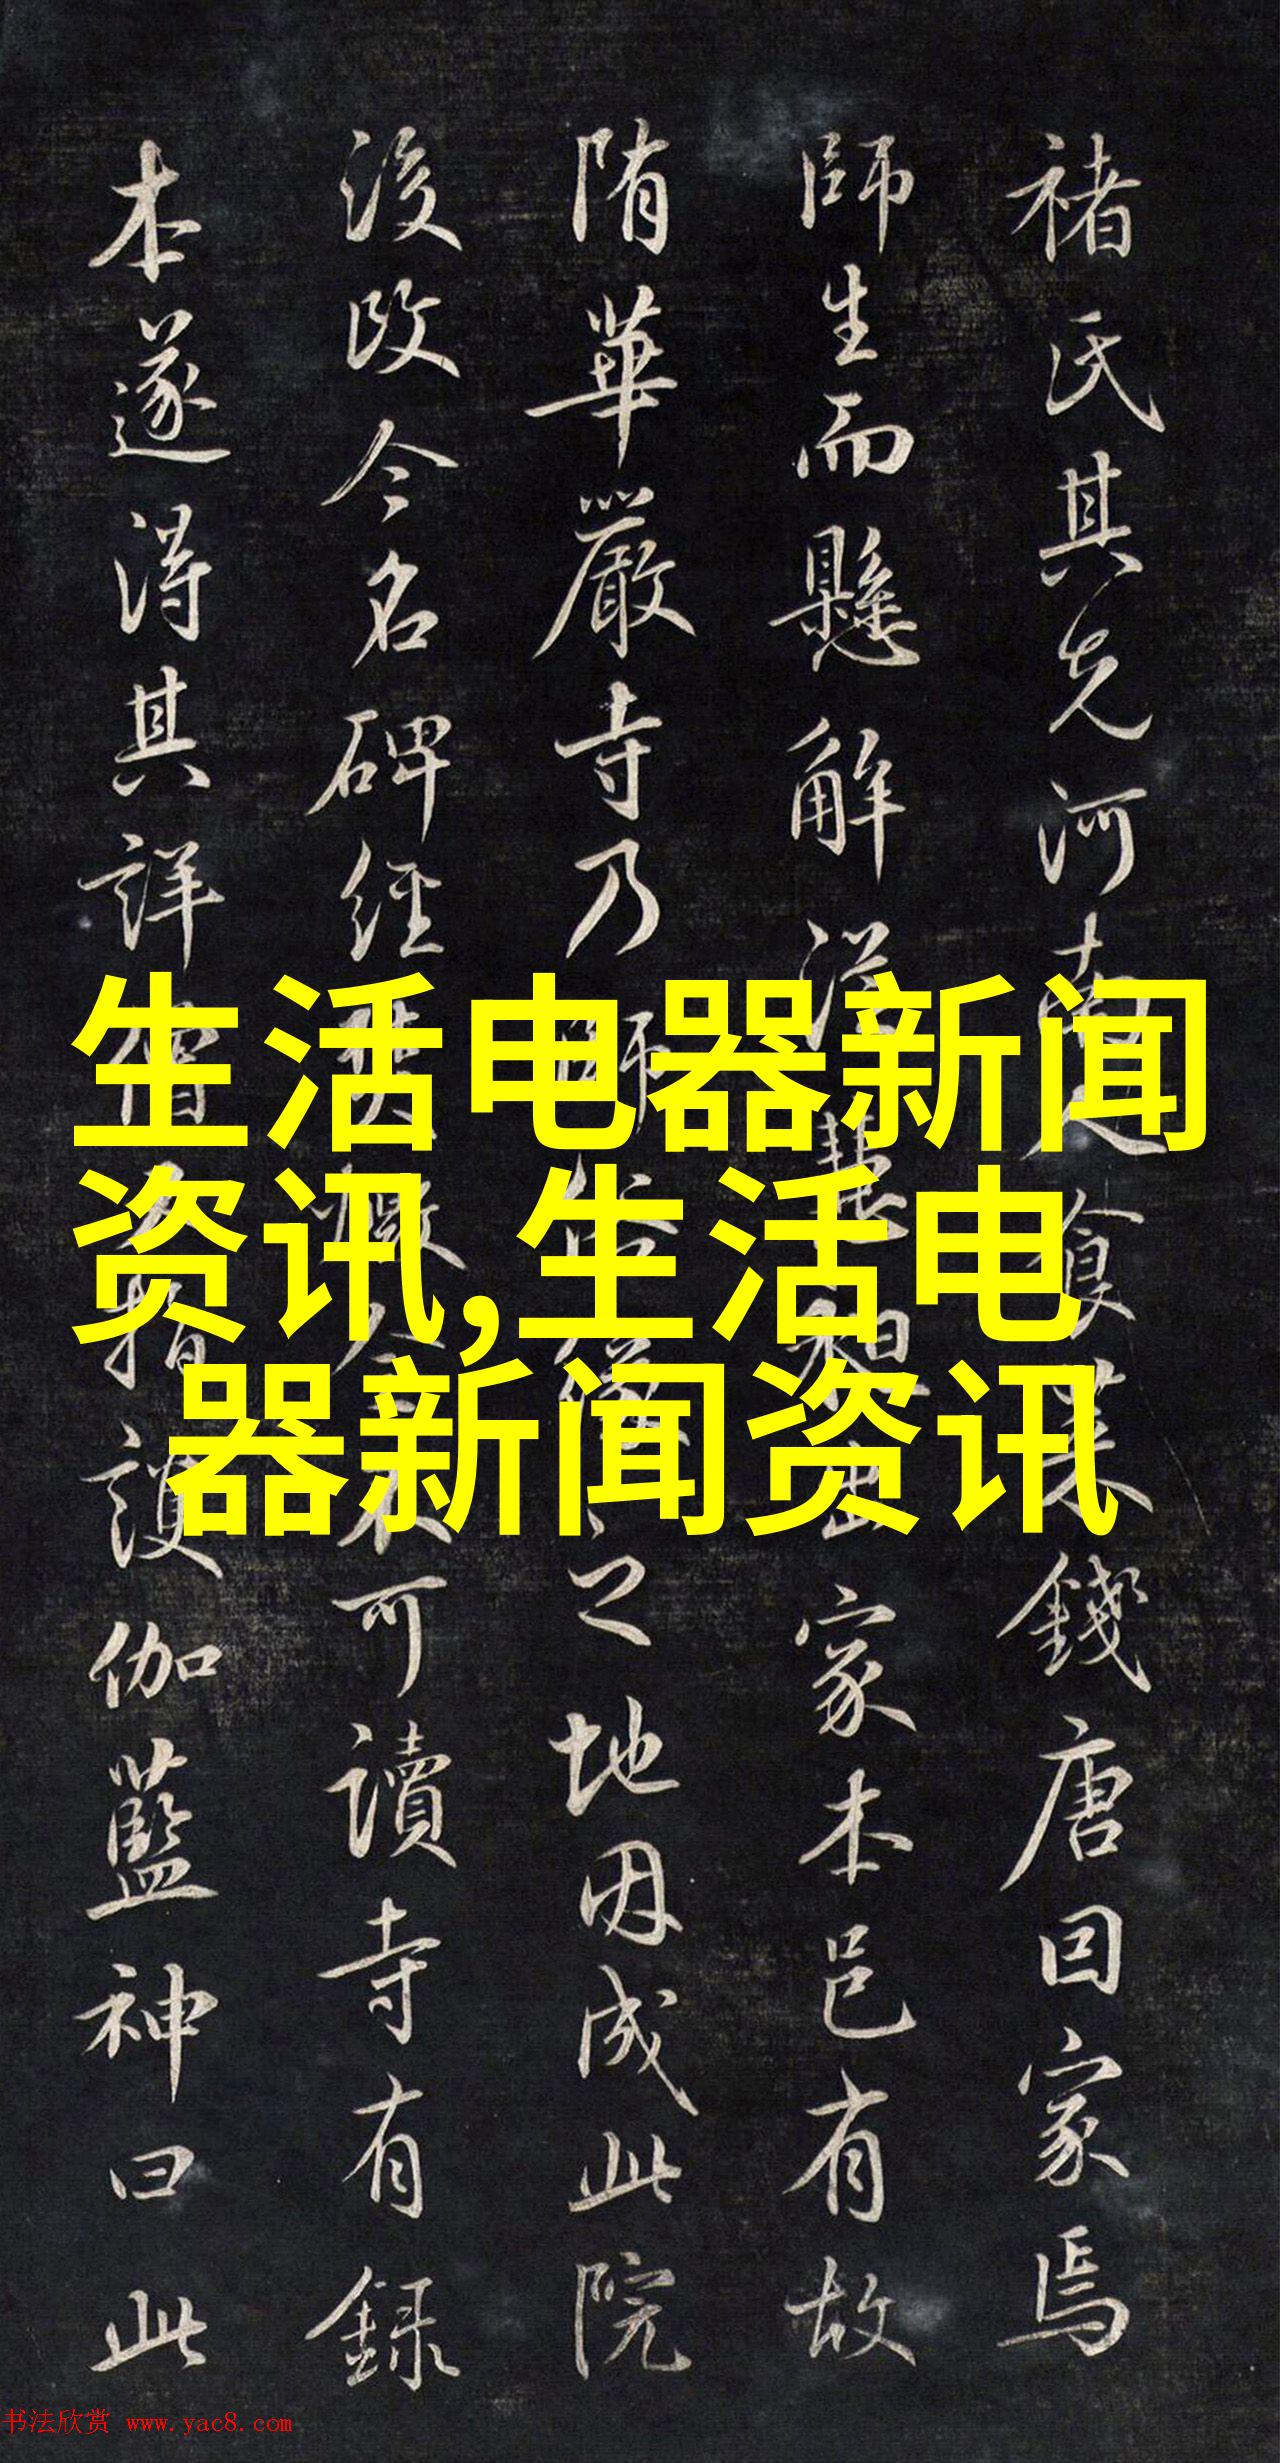 褚氏其先河南
食菜錢唐因家焉
師生而懸解
家本邑有故
隋華嚴寺乃師
之地因成此院
後改今名碑經
可讀寺有録
本遂得其詳僧
指護伽藍神曰此
生活电器新闻
资讯,生活电
器新闻资讯
书法欣赏 www.yac8.com